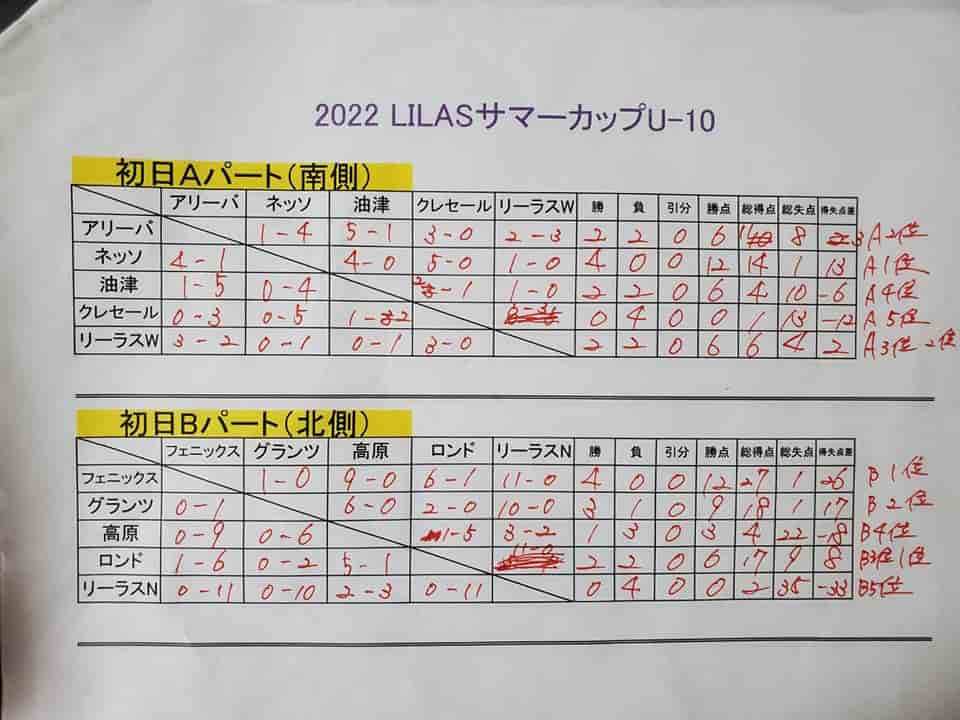 2022 LILASサマーカップU-10
初日Aパート(南側)
アリーバ ネッソ 油津 クレセール リーラスW 勝 負 引分 勝点 総得点 総失点 得失点差
アリーバ 1-4 5-1 3-0 2-3 2 2 0 6 11 8 3 A2位
ネッソ 4-1 4-0 5-0 1-0 4 0 0 12 14 1 13 A1位
油津 1-5 0-4 2-1 1-0 2 2 0 6 4 10 -6 A4位
クレセール 0-3 0-5 1-2 0 4 0 0 1 13 -12 A5位
リーラスW 3-2 0-1 0-1 3-0 2 2 0 6 6 4 2 A3位 2位
初日Bパート(北側)
フェニックス グランツ 高原 ロンド リーラスN 勝 負 引分 勝点 総得点 総失点 得失点差
フェニックス 1-0 9-0 6-1 11-0 4 0 0 12 27 1 26 B1位
グランツ 0-1 6-0 2-0 10-0 3 1 0 9 18 1 17 B2位
高原 0-9 0-6 1-5 3-2 1 3 0 3 4 22 -18 B4位
ロンド 1-6 0-2 5-1 11-0 2 2 0 6 17 9 8 B3位1位
リーラスN 0-11 0-10 2-3 0-11 0 4 0 0 2 35 -33 B5位